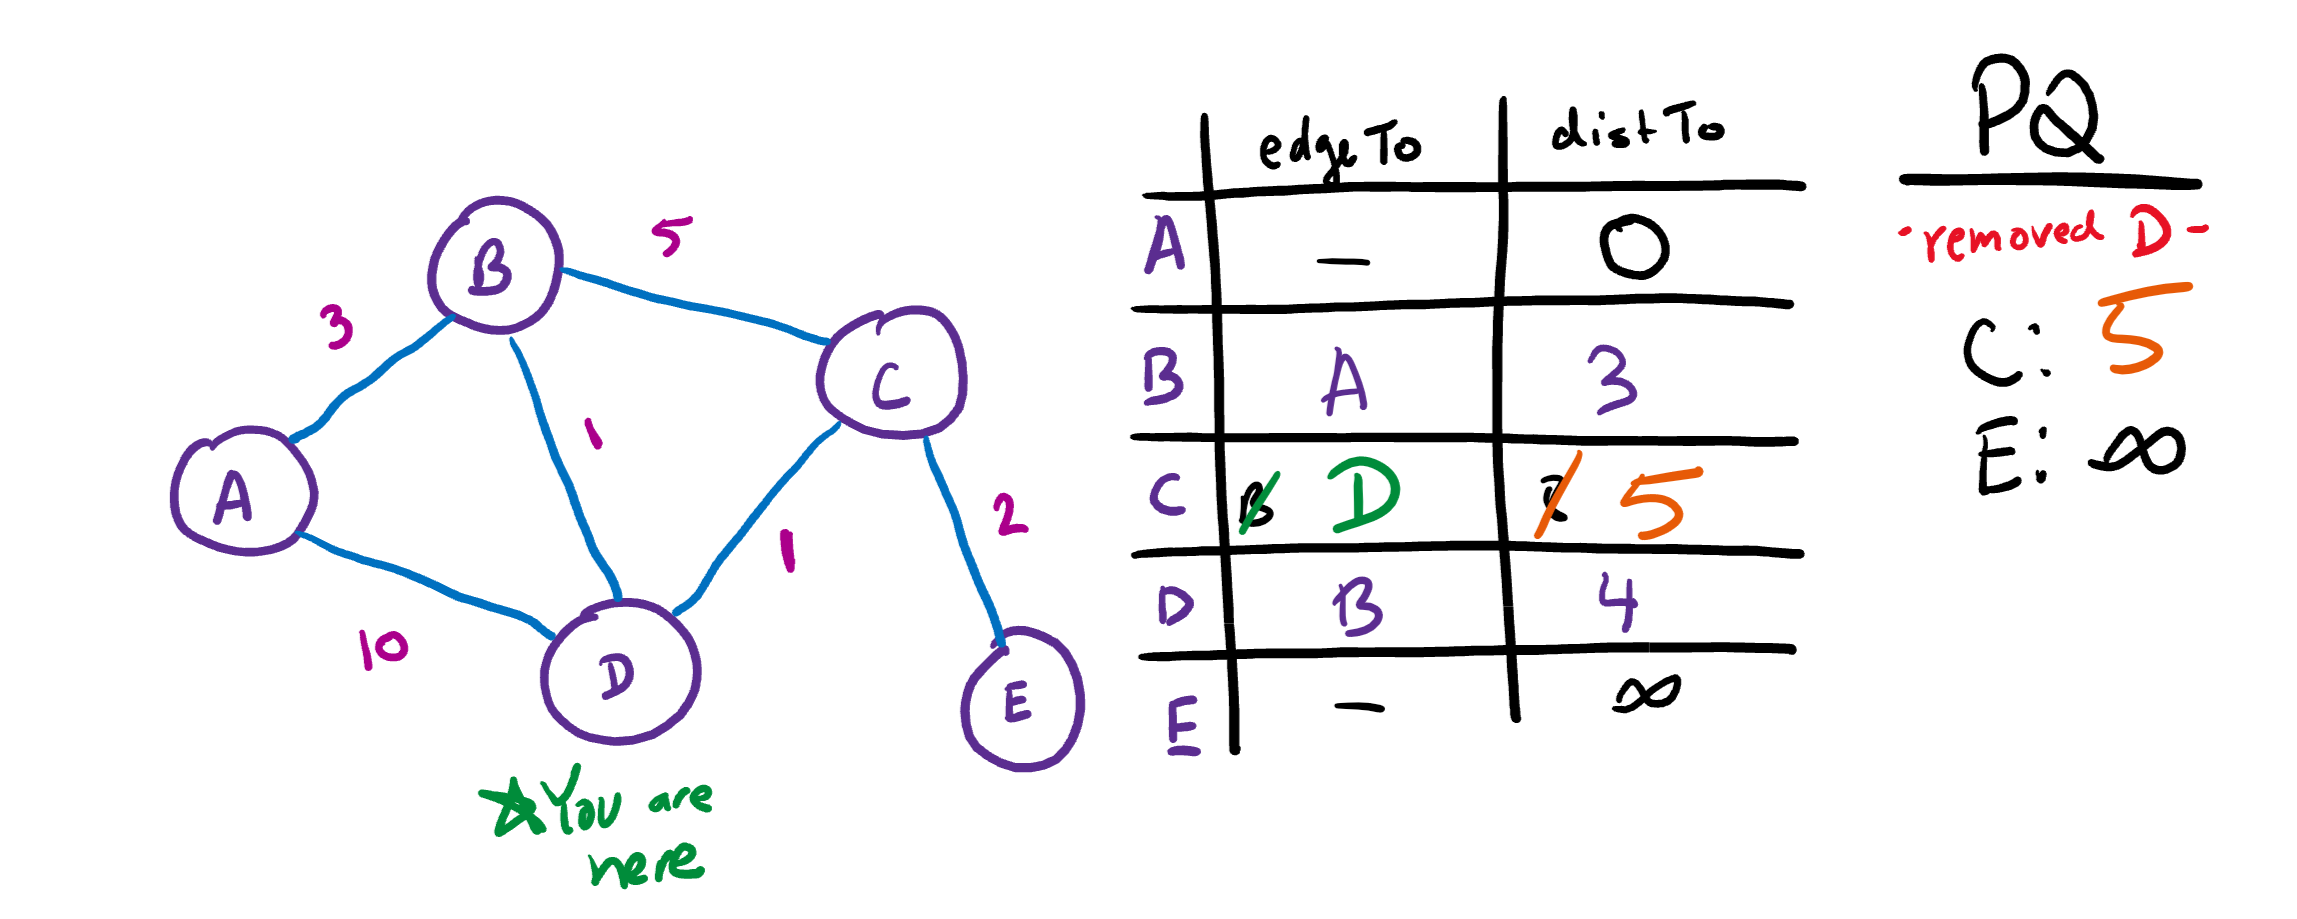 B
5
3
C
A
1
1
2
10
D
E
You are
here
edgeTo distTo
A – 0
B A 3
C B D 5
D B 4
E – ∞
PQ
-removed D-
C: 5
E: ∞